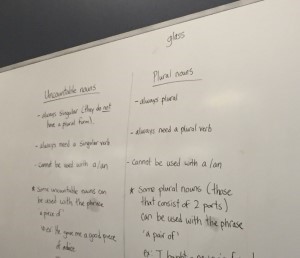 glass
Uncountable nouns
- always singular (they do not
have a plural form).
- always need a singular verb
- cannot be used with a/an
* Some uncountable nouns can
be used with the phrase
'a piece of'
He gave me a good piece
of advice
Plural nouns
- always plural
- always need a plural verb
- cannot be used with a/an
* Some plural nouns (those
that consist of 2 parts)
can be used with the phrase
'a pair of'
Ex: I bought